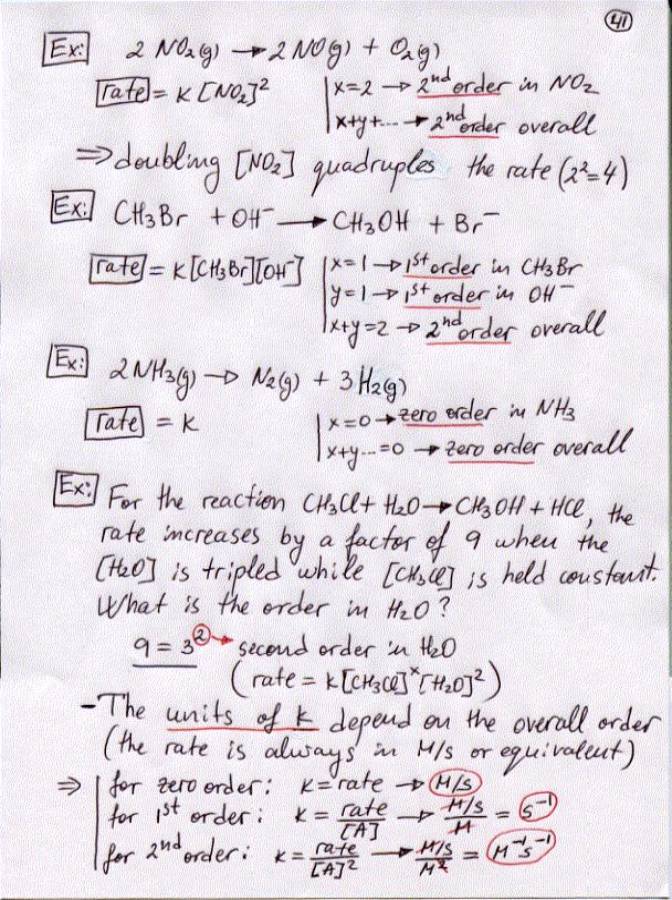 41
Ex: 2 NO₂(g) → 2 NO(g) + O₂(g)
rate = K [NO₂]² | x=2 → 2nd order in NO₂
| x+y+... → 2nd order overall
⇒ doubling [NO₂] quadruples the rate (2²=4)
Ex: CH₃Br + OH⁻ → CH₃OH + Br⁻
rate = K[CH₃Br][OH⁻] | x=1 → 1st order in CH₃Br
| y=1 → 1st order in OH⁻
| x+y=2 → 2nd order overall
Ex: 2 NH₃(g) → N₂(g) + 3 H₂(g)
rate = K | x=0 → zero order in NH₃
| x+y...=0 → zero order overall
Ex: For the reaction CH₃Cl + H₂O → CH₃OH + HCl, the
rate increases by a factor of 9 when the
[H₂O] is tripled while [CH₃Cl] is held constant.
What is the order in H₂O?
9 = 3² → second order in H₂O
(rate = K[CH₃Cl]ˣ[H₂O]²)
- The units of K depend on the overall order
(the rate is always in M/s or equivalent)
⇒ | for zero order: K = rate → M/s
| for 1st order: K = rate/[A] → M/s / M = s⁻¹
| for 2nd order: K = rate/[A]² → M/s / M² = M⁻¹s⁻¹